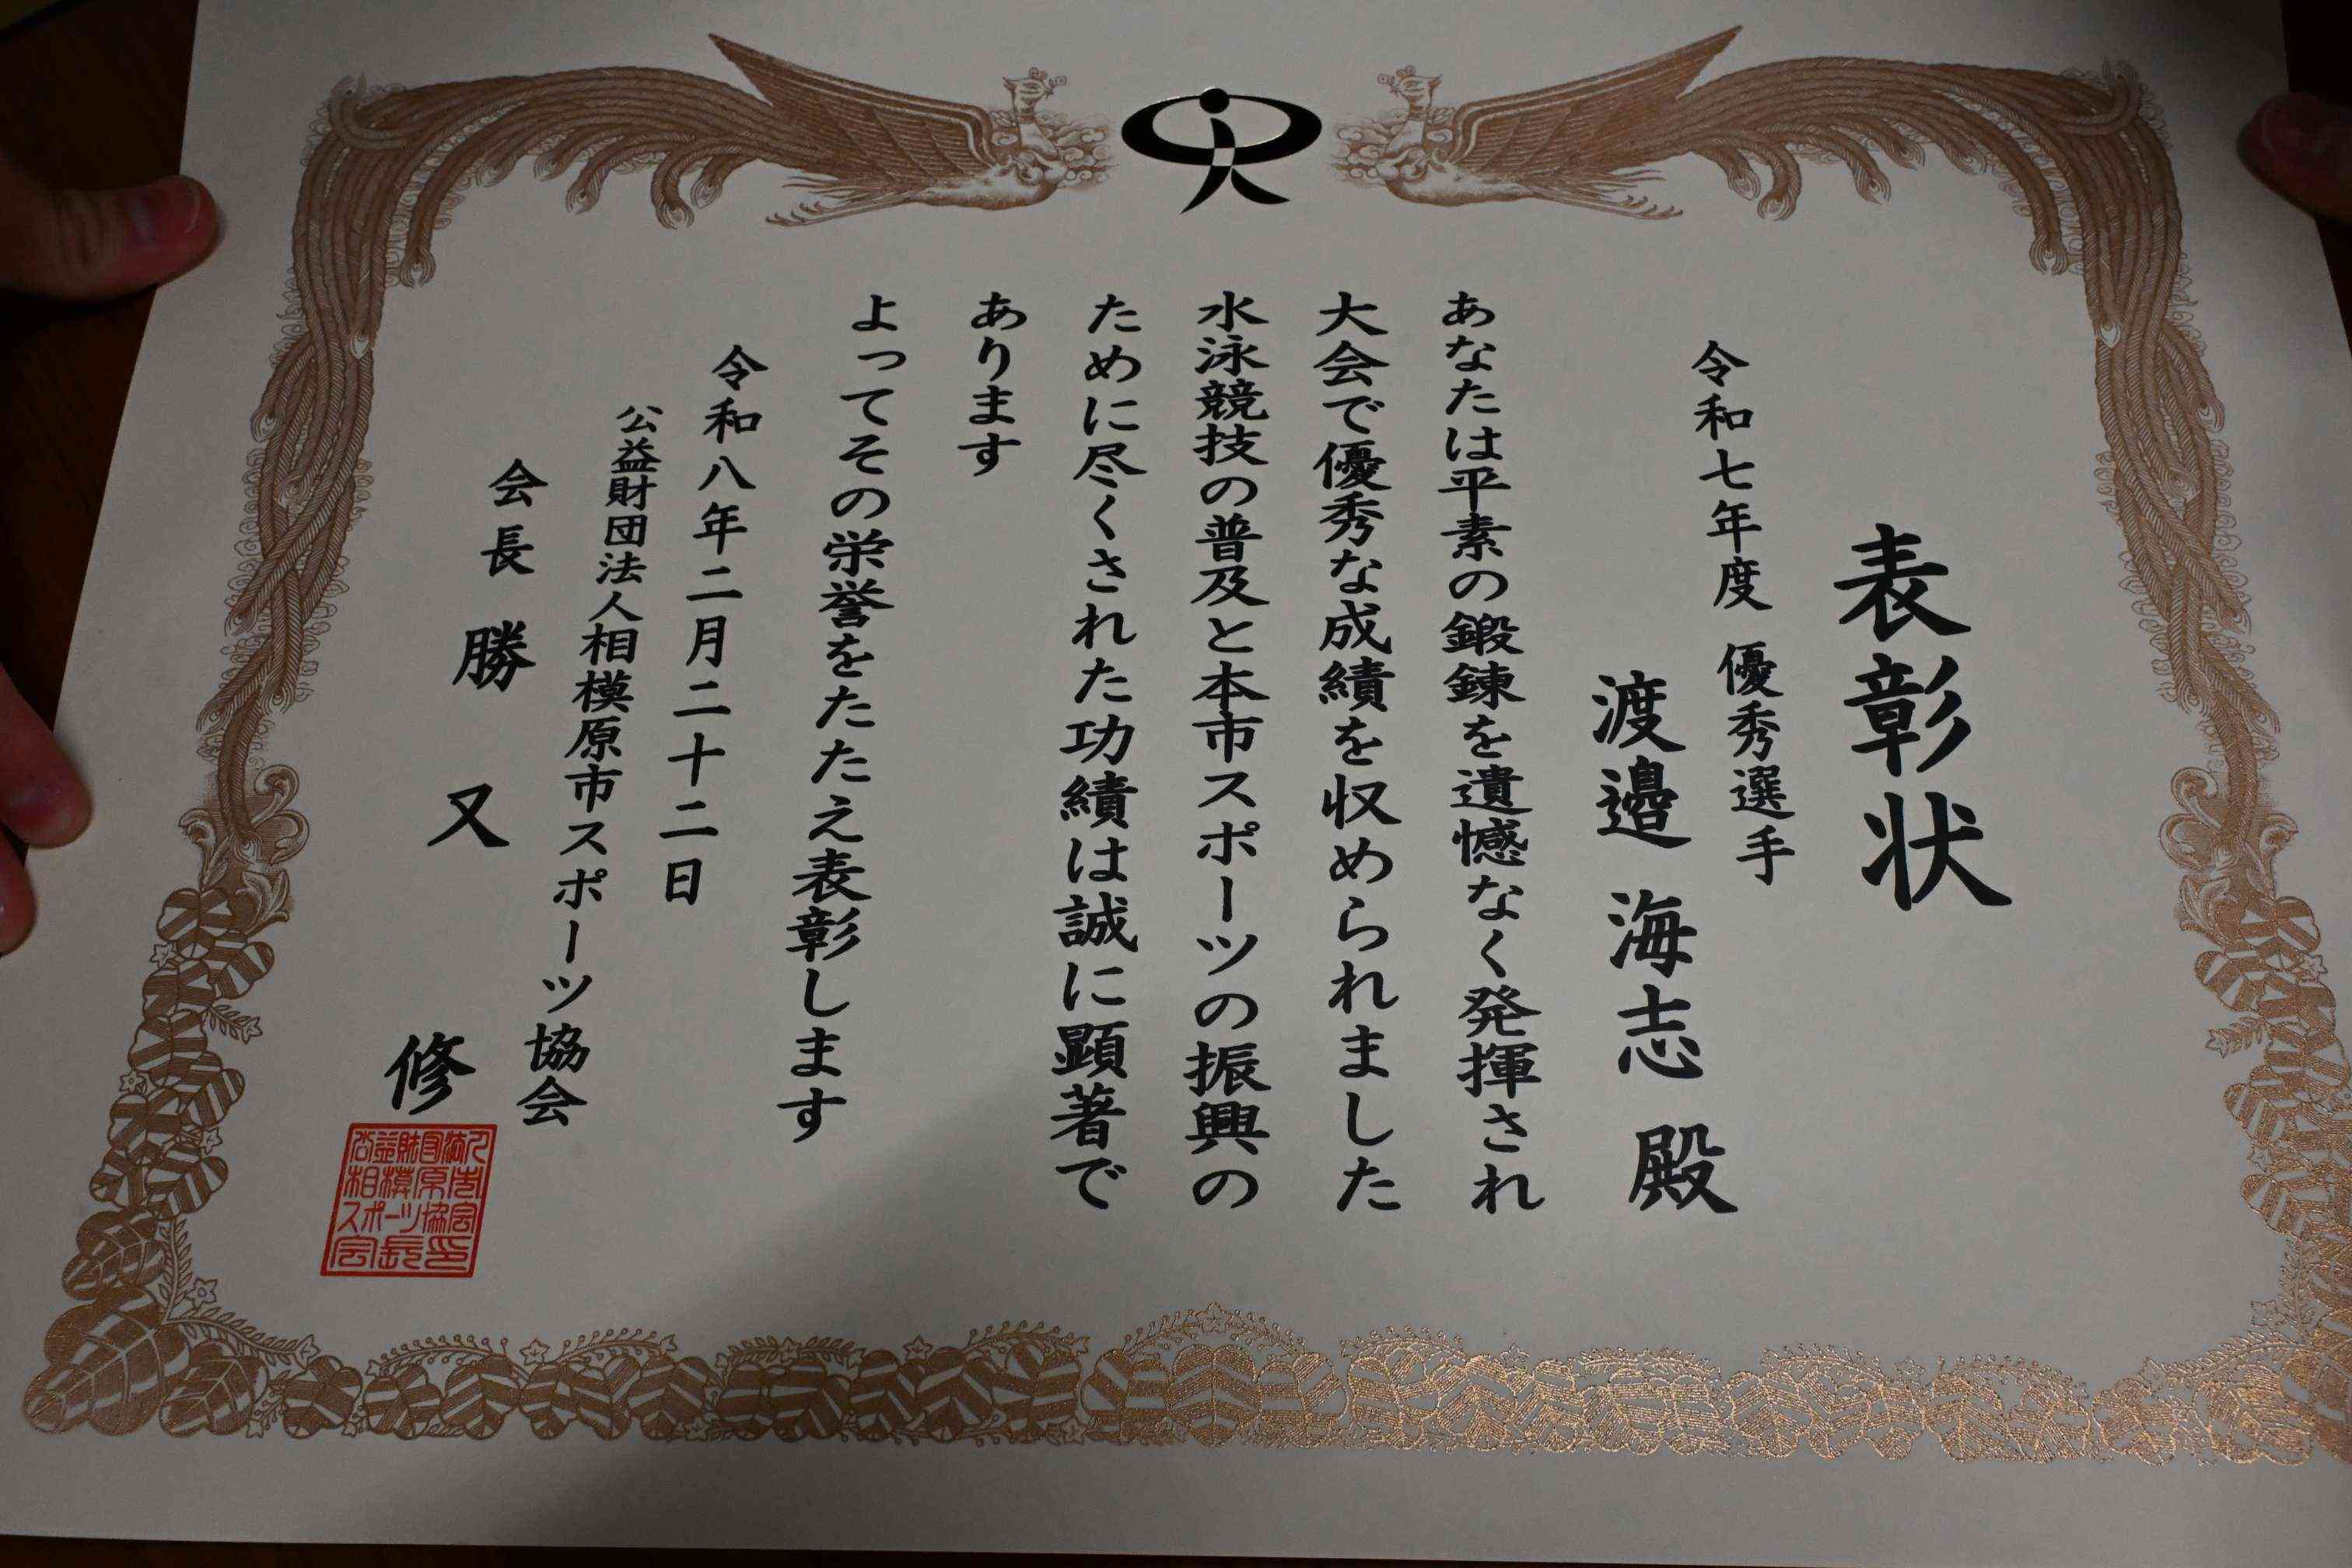 表彰状
令和七年度 優秀選手
渡邉 海志 殿
あなたは平素の鍛錬を遺憾なく発揮され
大会で優秀な成績を収められました
水泳競技の普及と本市スポーツの振興の
ために尽くされた功績は誠に顕著で
あります
よってその栄誉をたたえ表彰します
令和八年二月二十二日
公益財団法人相模原市スポーツ協会
会長 勝又 修
公益財団法人
相模原市
スポーツ協会
会長印